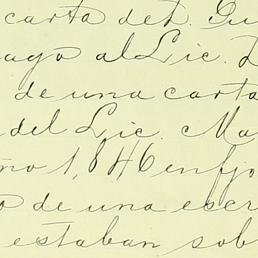 carta de D. Gu
ago al Lic. D
de una carta
del Lic. Ma
no 1,846 en fjo
o de una escr
estaban sob